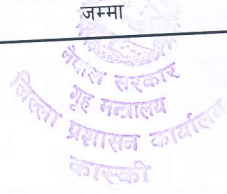 जम्मा
नेपाल सरकार
गृह मन्त्रालय
जिल्ला प्रशासन कार्यालय
कास्की